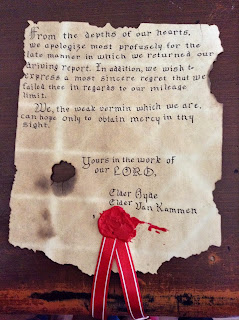 From the depths of our hearts,
we apologize most profusely for the
late manner in which we returned our
driving report. In addition, we wish to
express a most sincere regret that we
failed thee in regards to our mileage
limit.
We, the weak vermin which we are,
can hope only to obtain mercy in thy
sight.
Yours in the work of
our LORD,
Elder Hyde
Elder Van Kammen